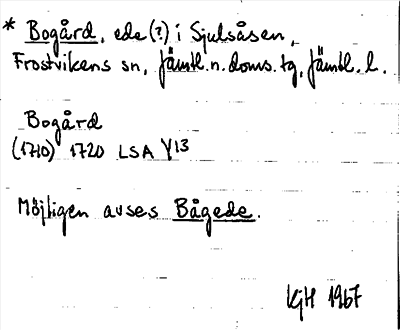 * Bogård, ede (?) i Sjulsåsen,
Frostvikens sn, Jämtl. n. doms. tg, Jämtl. l.
Bogård
(1710) 1720 LSA Y13
Möjligen avses Bågede.
KjH 1967